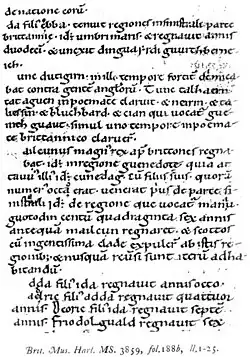 de natione eorū.
da filꝰ ebba. tenuit regiones insinistrali parte
brittannię. id ē umbri maris & regnauit annis
duodeci. & unexit dinguayrdi guurth berne
ich.
unc dutigirn. in illo tempore fortit̄ dimica
bat contra gentē anglorū. Tunc talhaern
tat aguen inpoemate claruit. & neirin. & ta
liessin. & bluchbard. & cian qui uocat̄ gue
inth guaut. simul uno tempore inpoema
te brittannico claruer̄.
ailcunus magnꝰ rex ap̄ brittones regna
bat. id ē inregione guenedote quia at
tauus illiꝰ id ē cunedag cū filiis suis. quorū
numerꝰ octo erat. uenerat priꝰ de parte si
nistrali id ē de regione que uocat̄ manau
guotodin centū quadraginta sex annis
antequā mailcun regnaret. & scottos
cū ingentissima clade expuler̄ ab istis re
gionibꝰ; & nusquā reuersi sunt iterū adha
bitandū.
dda filꝰ ida regnauit annis octo.
filꝰ adda regnauit quattuor
annis. Deoric filꝰ ida regnauit septē
annis Friodolguald regnauit sex
Brit. Mus. Harl. MS. 3859, fol. 188b, ll. 1-25.